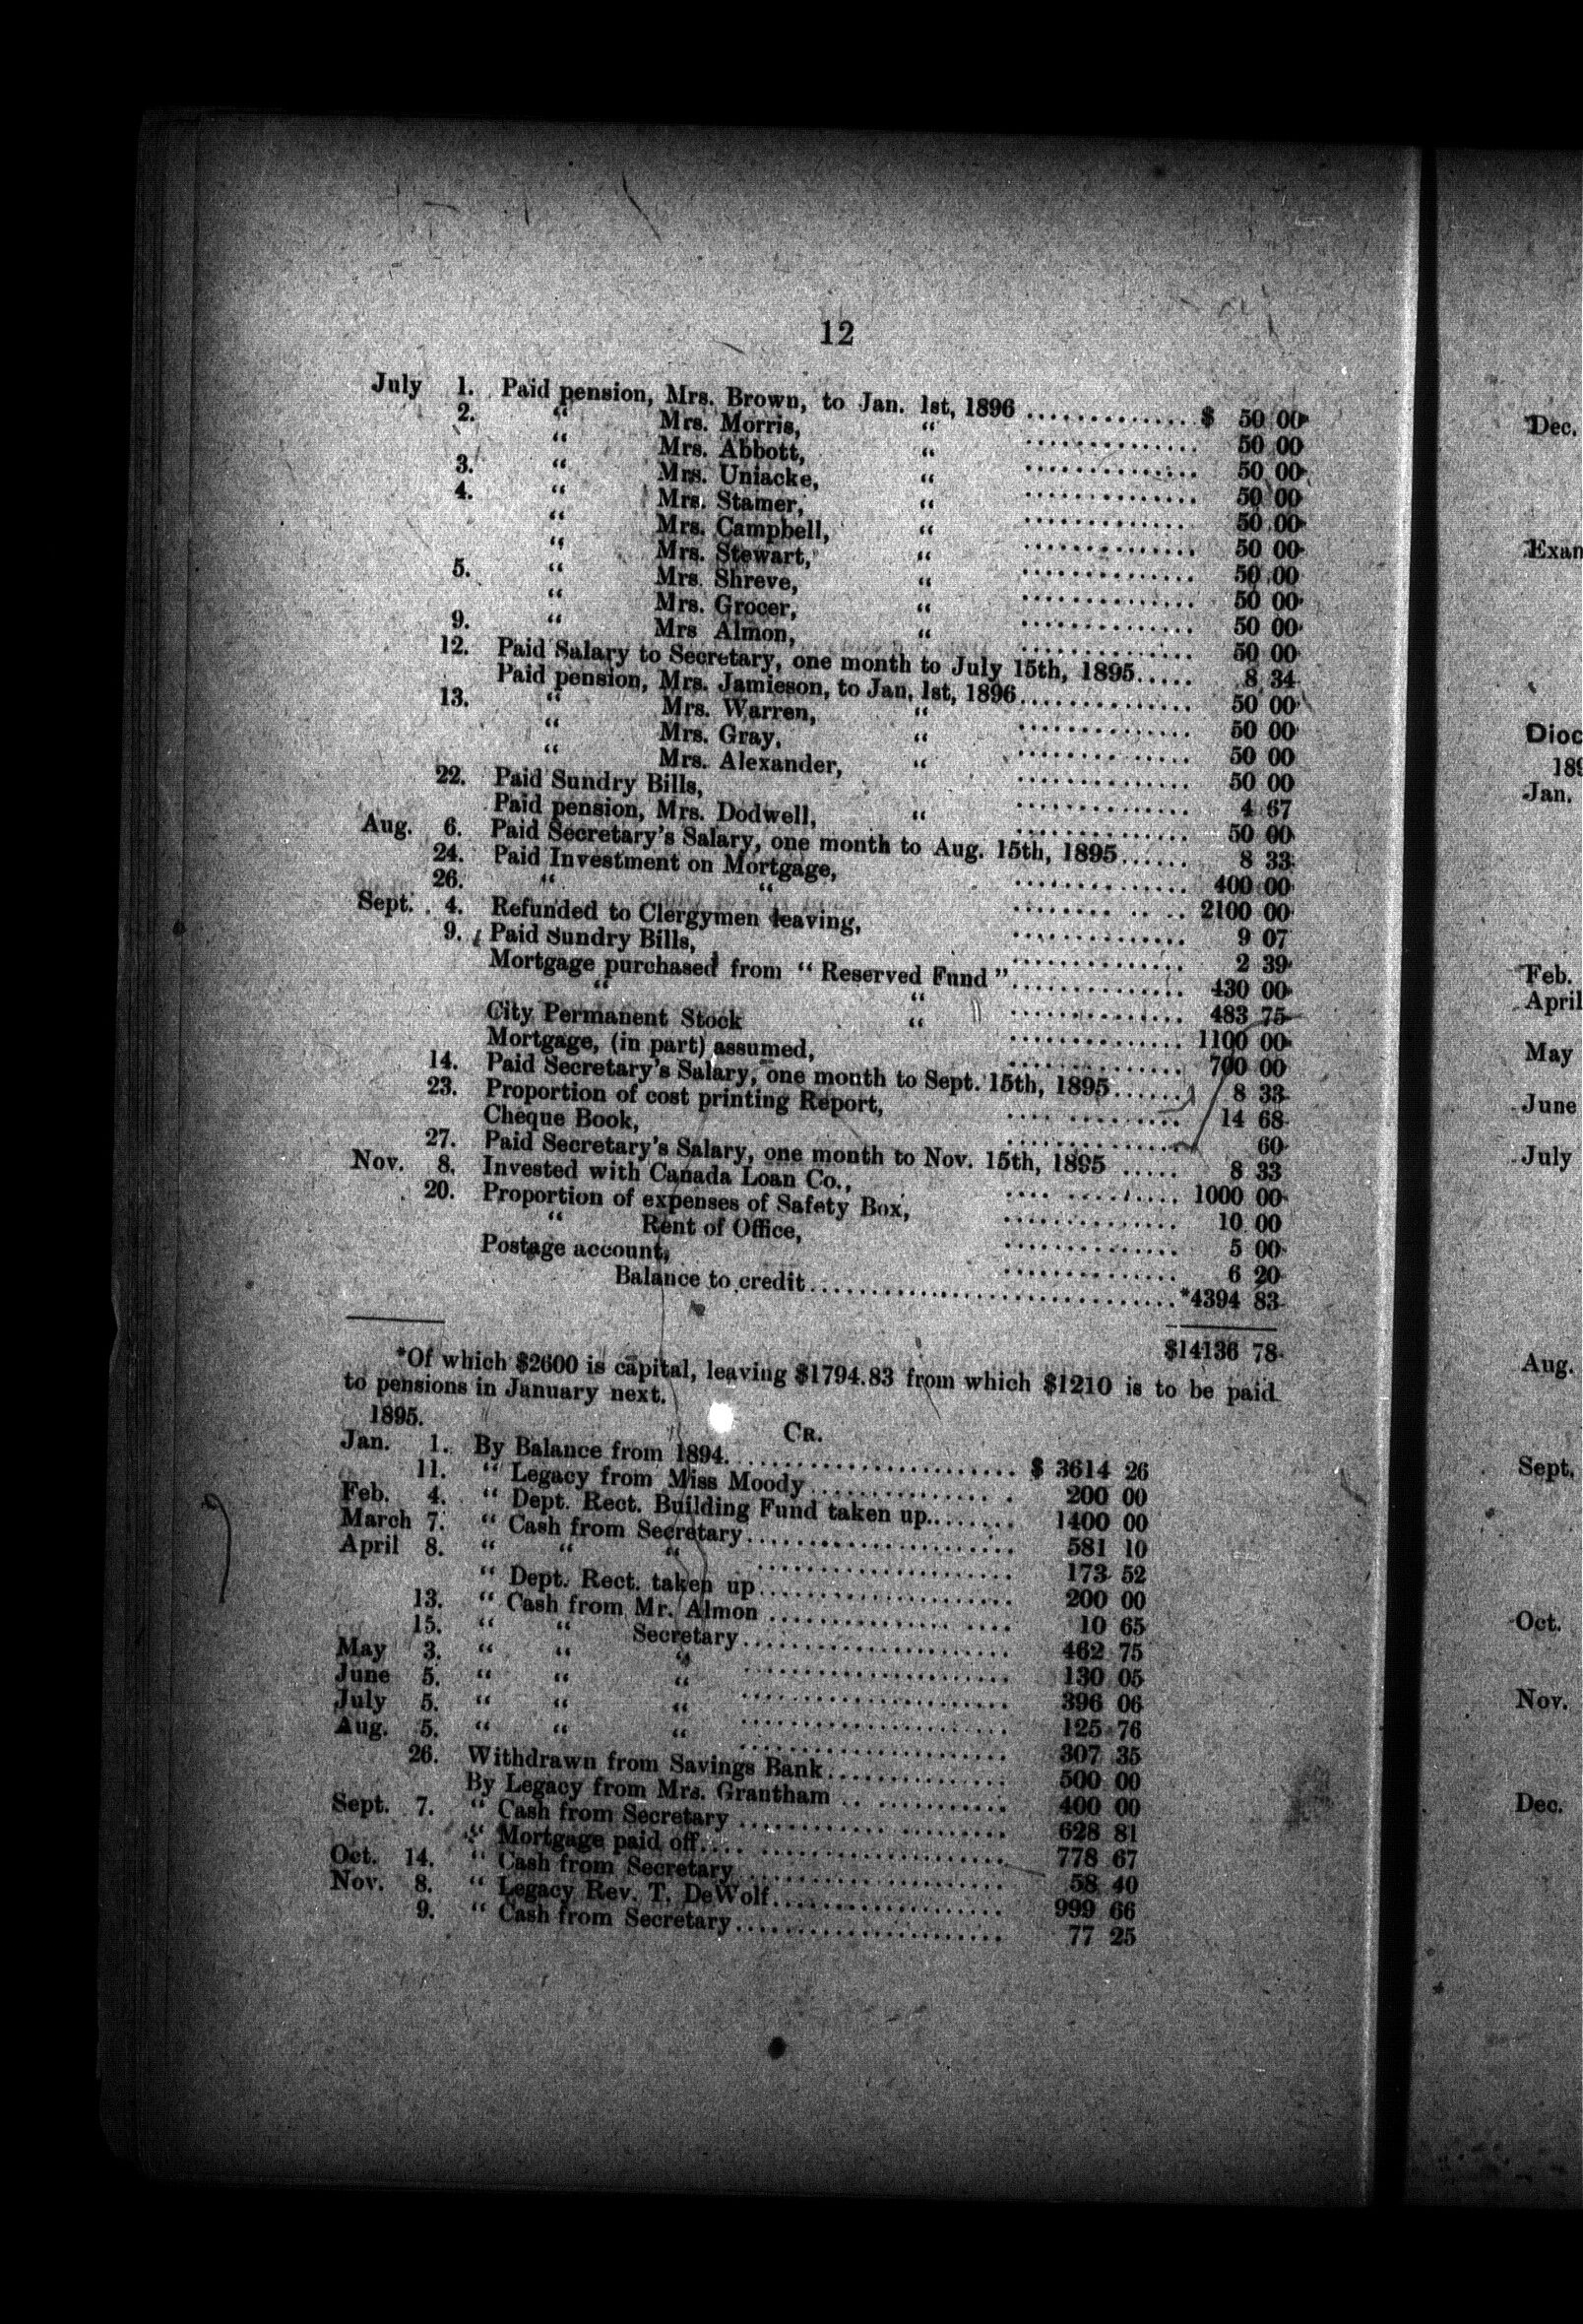 12
July 1. Paid pension, Mrs. Brown, to Jan. 1st, 1896 .............. $ 50 00
2. “ Mrs. Morris, “ .............. 50 00
“ Mrs. Abbott, “ .............. 50 00
3. “ Mrs. Uniacke, “ .............. 50 00
4. “ Mrs. Stamer, “ .............. 50 00
“ Mrs. Campbell, “ .............. 50 00
“ Mrs. Stewart, “ .............. 50 00
5. “ Mrs. Shreve, “ .............. 50 00
“ Mrs. Grocer, “ .............. 50 00
9. “ Mrs Almon, “ .............. 50 00
12. Paid Salary to Secretary, one month to July 15th, 1895..... 8 34
Paid pension, Mrs. Jamieson, to Jan. 1st, 1896.............. 50 00
13. “ Mrs. Warren, “ .............. 50 00
“ Mrs. Gray, “ .............. 50 00
“ Mrs. Alexander, “ .............. 50 00
22. Paid Sundry Bills, .............. 4 67
Paid pension, Mrs. Dodwell, “ .............. 50 00
Aug. 6. Paid Secretary's Salary, one month to Aug. 15th, 1895...... 8 33
24. Paid Investment on Mortgage, .............. 400 00
26. “ “ .............. 2100 00
Sept. 4. Refunded to Clergymen leaving, .............. 9 07
9. Paid Sundry Bills, .............. 2 39
Mortgage purchased from “ Reserved Fund ”.............. 430 00
“ “ .............. 483 75
City Permanent Stock “ .............. 1100 00
Mortgage, (in part) assumed, .............. 700 00
14. Paid Secretary's Salary, one month to Sept. 15th, 1895...... 8 33
23. Proportion of cost printing Report, .............. 14 68
Cheque Book, .............. 60
27. Paid Secretary's Salary, one month to Nov. 15th, 1895 ..... 8 33
Nov. 8. Invested with Canada Loan Co., .............. 1000 00
20. Proportion of expenses of Safety Box, .............. 10 00
“ Rent of Office, .............. 5 00
Postage account, .............. 6 20
Balance to credit..............................*4394 83
$14136 78
*Of which $2600 is capital, leaving $1794.83 from which $1210 is to be paid
to pensions in January next.
1895. CR.
Jan. 1. By Balance from 1894........................ $ 3614 26
11. “ Legacy from Miss Moody................ 200 00
Feb. 4. “ Dept. Rect. Building Fund taken up........ 1400 00
March 7. “ Cash from Secretary...................... 581 10
April 8. “ “ “ ...................... 173 52
“ Dept. Rect. taken up..................... 200 00
13. “ Cash from Mr. Almon .................... 10 65
15. “ “ Secretary...................... 462 75
May 3. “ “ “ ...................... 130 05
June 5. “ “ “ ...................... 396 06
July 5. “ “ “ ...................... 125 76
Aug. 5. “ “ “ ...................... 307 35
26. Withdrawn from Savings Bank............... 500 00
By Legacy from Mrs. Grantham .............. 400 00
Sept. 7. “ Cash from Secretary ...................... 628 81
“ Mortgage paid off........................ 778 67
Oct. 14. “ Cash from Secretary...................... 58 40
Nov. 8. “ Legacy Rev. T. DeWolf................... 999 66
9. “ Cash from Secretary...................... 77 25
Dec.
Exan
Dioc
189
Jan.
Feb.
April
May
June
July
Aug.
Sept.
Oct.
Nov.
Dec.